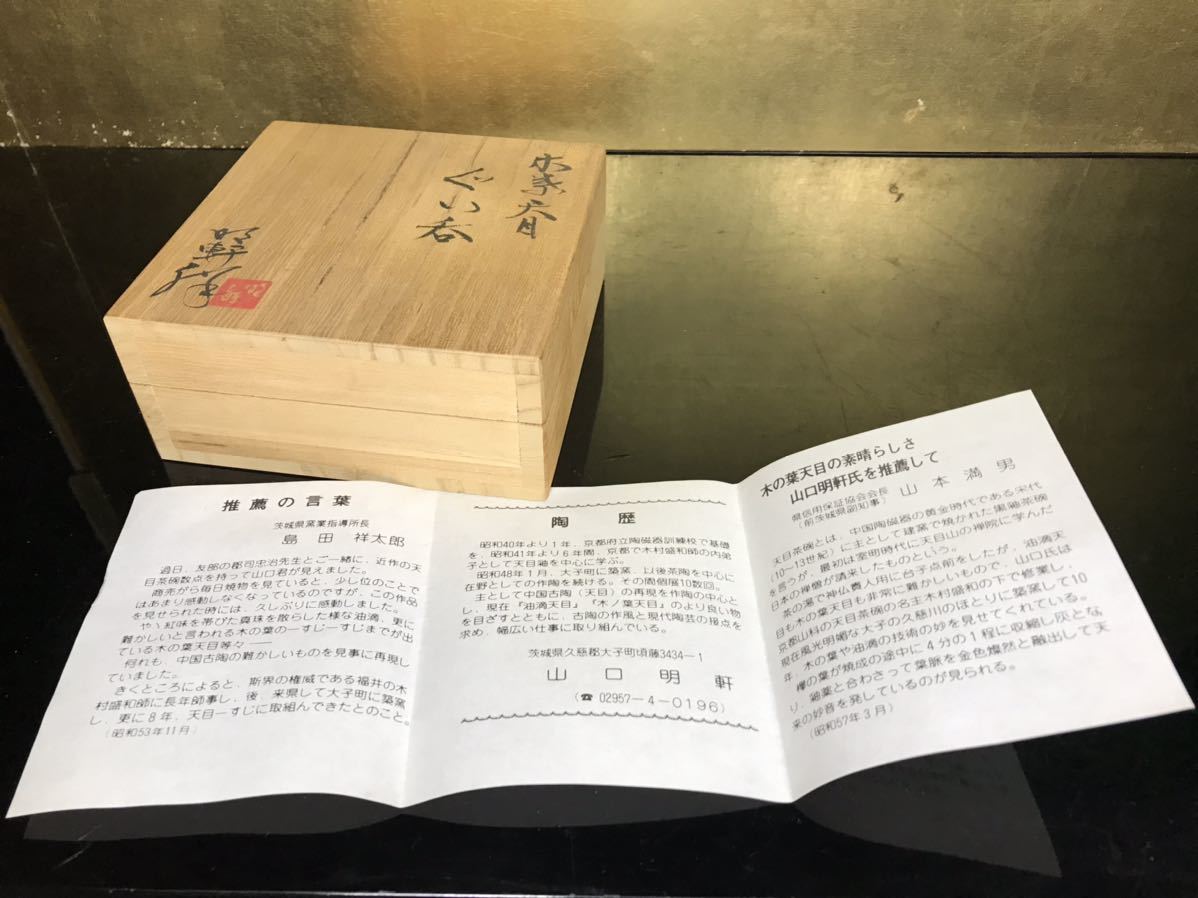 木葉天目
ぐい呑
明軒
推薦の言葉
茨城県窯業指導所長
島田祥太郎
過日、友部の郡司忠治先生と一緒に、近作の天
目茶碗数点を持って山口君が見えました。
商売がら毎日焼物を見ていると、少し位のことで
はあまり感動しなくなっているのですが、この作品
を見せられた時には、久しぶりに感動しました。
やゝ紅味を帯びた真珠を散らした様な油滴、更に
難かしいと言われる木の葉の一すじ一すじまでが出
ている木の葉天目等々──
何れも、中国古陶の難かしいものを見事に再現し
ていました。
きくところによると、斯界の権威である福井の木
村盛和師に長年師事し、後、来県して大子町に築窯
し、更に8年、天目一すじに取組んできたとのこと。
(昭和53年11月)
陶歴
昭和40年より1年、京都府立陶磁器訓練校で基礎
を、昭和41年より6年間、京都で木村盛和師の内弟
子として天目釉を中心に学ぶ。
昭和48年1月、大子町に築窯、以後茶陶を中心に
野としての作陶を続ける。その間個展10数回。
主として中国古陶(天目)の再現を作陶の中心と
し、現在『油滴天目』『木ノ葉天目』のより良い物
を目ざすとともに、古陶の作風と現代陶芸の接点を
求め、幅広い仕事に取り組んでいる。
茨城県久慈郡大子町頃藤3434-1
山口明軒
(☎ 02957-4-0196)
木の葉天目の素晴らしさ
山口明軒氏を推薦して
県信用保証協会会長
(前茨城県副知事)
山本満男
天目茶碗とは、中国陶磁器の黄金時代である宋代
(10~13世紀)に主として建窯で焼かれた黒釉茶碗
を言うが、最初は室町時代に天目山の禅院に学んだ
日本の禅僧が請来したものという。
茶の湯で神仏貴人用に台子点前をしたが、油滴天
目も木の葉天目も非常に難かしいもので、山口氏は
京都山科の天目茶碗の名主木村盛和の下で修業し、
現在風光明媚な大子の久慈川のほとりに築窯して10
年、木の葉や油滴の技術の妙を見せてくれている。
欅の葉が焼成の途中に4分の1程に収縮し灰とな
り、釉薬と合わさって葉脈を金色燦然と融出して天
来の妙音を発しているのが見られる。
(昭和57年3月)